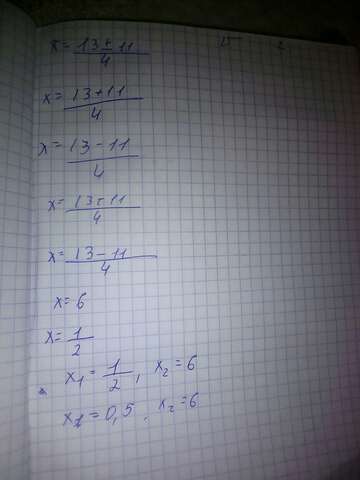 x = 13 ± 11 / 4
x = 13 + 11 / 4
x = 13 - 11 / 4
x = 13 + 11 / 4
x = 13 - 11 / 4
x = 6
x = 1 / 2
x₁ = 1 / 2, x₂ = 6
x₁ = 0,5, x₂ = 6